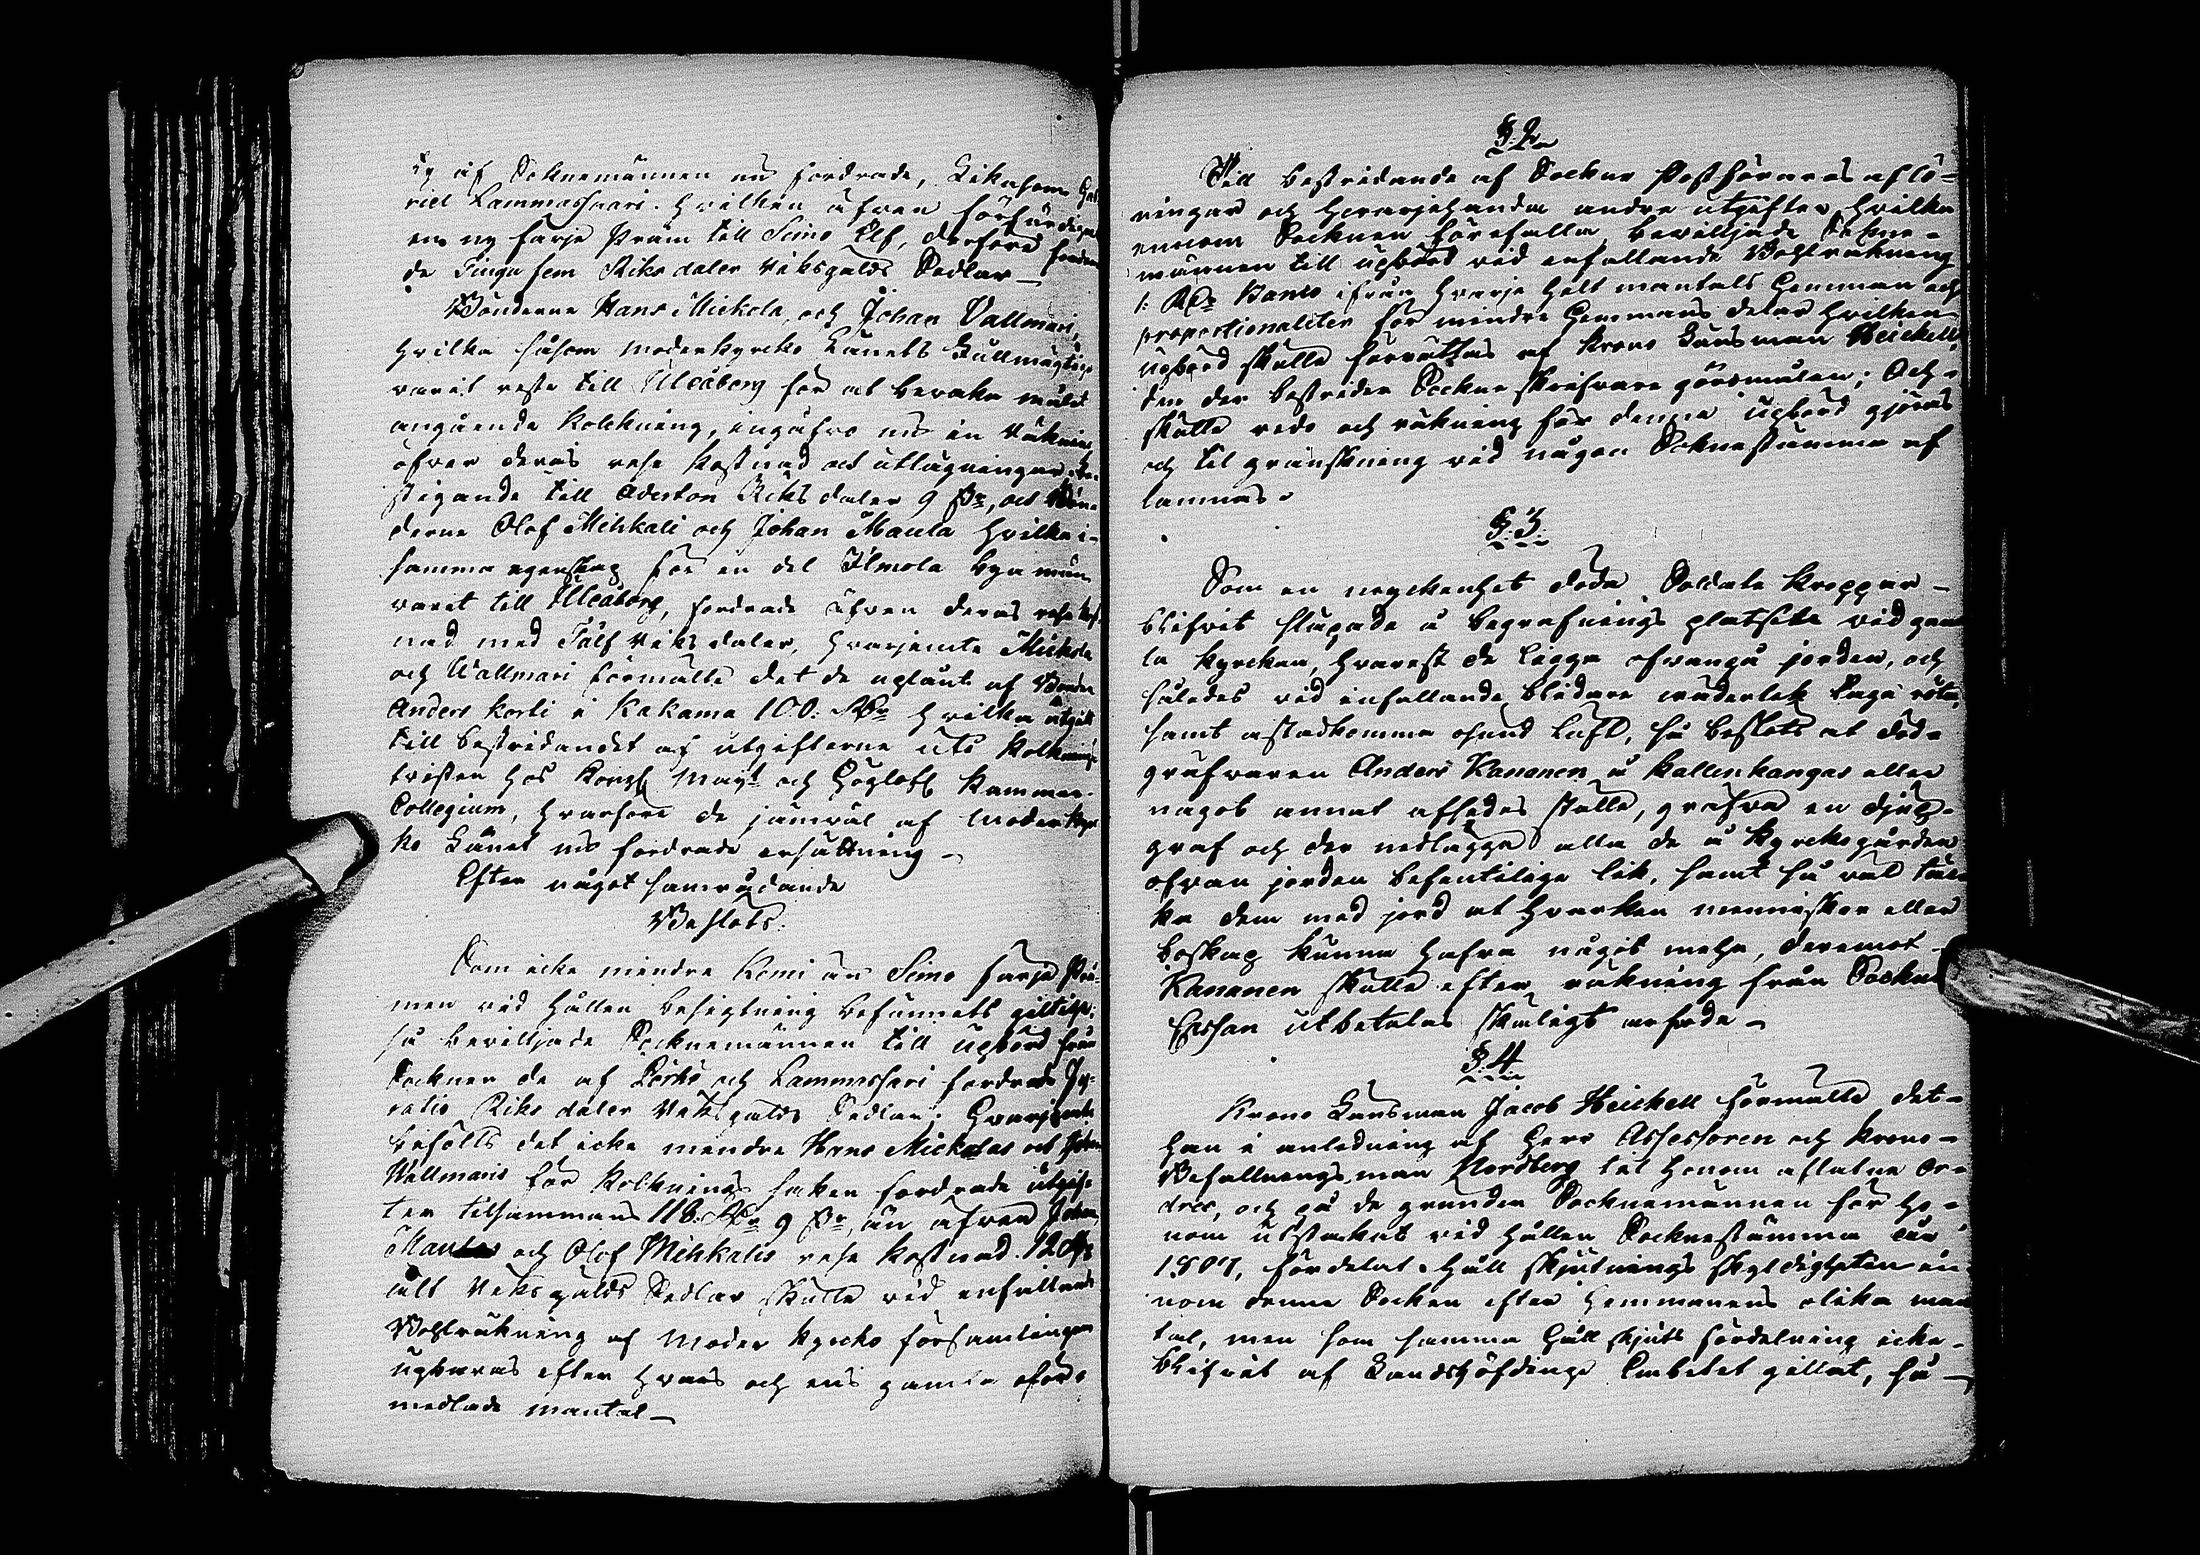 ty af Soknemännen nu fordrade, Likasom Gab
riel Lammassaari. hvilken äfven förfärdigat
en ny farje Pram till Simo Elf, derföre fordra
de Tiugu fem Riksdaler Riksgälds Sedlar
Bönderne Hans Mickola, och Johan Vallmari,
hvilka såsom moderkyrko Länets Fullmägtige
varit reste till Uleåborg för at bevaka målet
angående Kolckning, ingåfvo nu en räkning
öfver deras rese kostnad och utlägningar, be-
stigande till Aderton Riksdaler 9 ß, och Bön-
derne Olof Mihkali och Johan Maula hvilka i
samma egenskap för en del Ilmola bya män
varit till Uleåborg, fordrade äfven deras rese kost
nad med Tålf riksdaler, hvarjemte Mickola
och Wallmari förmälte det de uplånt af Bonden
Anders Korti i Kakama 100: Rdr hvilka utgått
till bestridandet af utgifterne uti Kolknings
tvisten hos Kongl Mayt och Höglofl Kammar-
Collegium, hvarföre de jämväl af moderkyr
ko Länet nu fordrade ersättning
Efter något samrådande
Beslöts.
Som icke mindre Kemi än Simo farje Prå-
men vid hållen besigtning befunnits giltige;
så bevilljade Socknemännen till upbörd från
Socknen de af Pörhö och Lammassari fordrade Ti-
ratio Riksdaler Riksgälds Sedlar; Hvarjemte
beslöts det icke mindre Hans Mickolas och Johan
Wallmaris för Kolknings saken fordrade utgif-
ter tilsammans 118. Rdr 9 ß, än äfven Johan
Maulas och Olof Mihkalis rese kostnad 12 Rdr
allt Riksgälds Sedlar skulle vid infallande
Bohlräkning af Moder kyrko församlingen
upbäras efter hvars och ens gamla oför-
medlade mantal
§ 2
Till bestridande af Sockne Postförares aflö-
ningar och hvarjehanda andra utgifter hvilka
innom Socknen förefalla bevilljade Sokne-
männen till upbörd vid infallande Bohlräkning
1: Rdr Banco ifrån hvarje helt mantals Hemman och
proportionaliter för mindre Hemmans delar hvilken
upbörd skulle förrättas af Krono Länsman Heickell
den der bestrider Sockne skrifvare görsmålen; Och
skulle redo och räkning för denna upbörd gjöras
och til granskning vid någon Socknestämma af
lämnas.
§ 3
Som en myckenhet döda Soldate kroppar
blifvit släpade å begrafnings platsen vid gam
la kyrckan, hvarest de ligga ofvanpå jorden, och
således vid infallande blidare väderlek taga röta,
samt åstadkomma osund luft, så beslöts at död-
gräfvaren Anders Kananen å Kallenkangas eller
något annat afsedes ställe, gräfva en djup
graf och der nedlägga alla de å kyrckogården
ofvan jorden befintelige lik, samt så väl täc-
ka dem med jord at hvarken menniskor eller
boskap kunna hafva något mehn, deremot
Kananen skulle efter räkning från Sockne
Cassan utbetalas skäligt arfvode
§ 4
Krono Länsman Jacob Heickell förmälte det
han i anledning af Herr Assessoren och Krono
Befallningsman Nordberg til honom aflåtne or-
dres, och på de grunder Socknemännen för ho-
nom utstakat vid hållen Socknestämma År
1807, fördelat Håll skjutnings skyldigheten in
nom denne Socken efter Hemmanens olika man
tal, men som samma Håll skjuts fördelning icke
blifvit af Landshöfdinge Embetet gillat, så